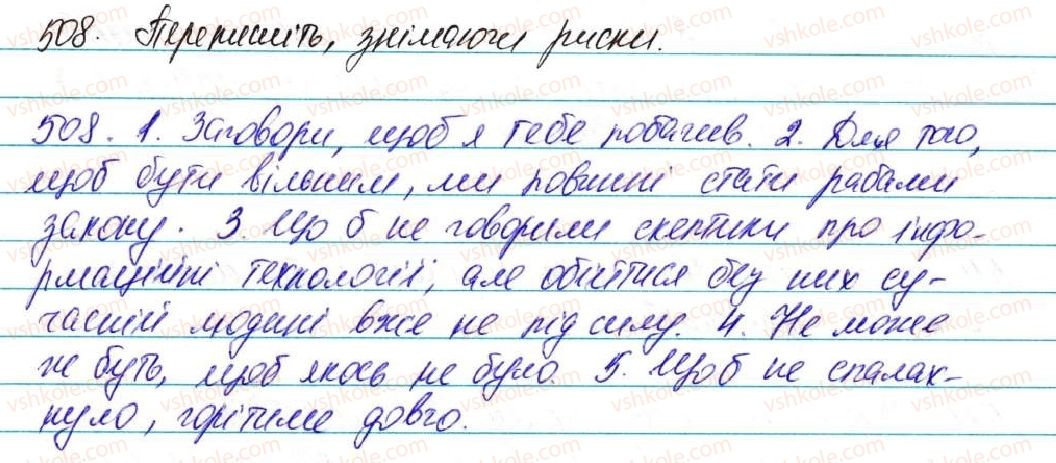 508. Перепишіть, знімаючи риски.
508. 1. Заговори, щоб я тебе побачив. 2. Для того,
щоб бути вільним, ми повинні стати рабами
закону. 3. Що б не говорили скептики про інфо-
рмаційні технології, але обійтися без них су-
часній людині вже не під силу. 4. Не може
ж буть, щоб якось не було. 5. Що б не спалах-
нуло, горітиме довго.